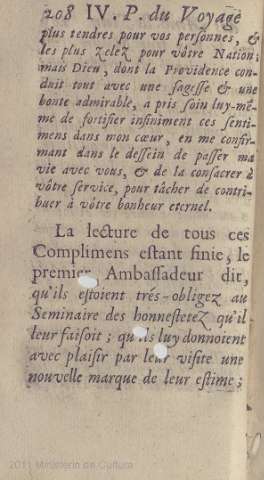 208 IV. P. du Voyage
plus tendres pour vos personnes, &
les plus zelez pour vôtre Nation;
mais Dieu, dont la Providence con-
duit tout avec une sagesse & une
bonte admirable, a pris soin luy-mê-
me de fortifier infiniment ces senti-
mens dans mon cœur, en me confir-
mant dans le dessein de passer ma
vie avec vous, & de la consacrer à
vôtre service, pour tâcher de contri-
buer à vôtre bonheur eternel.
La lecture de tous ces
Complimens estant finie, le
premier Ambassadeur dit,
qu'ils estoient trés-obligez au
Seminaire des honnestetez qu'il
leur faisoit; qu'ils luy donnoient
avec plaisir par leur visite une
nouvelle marque de leur estime;
2011 Ministerio de Cultura